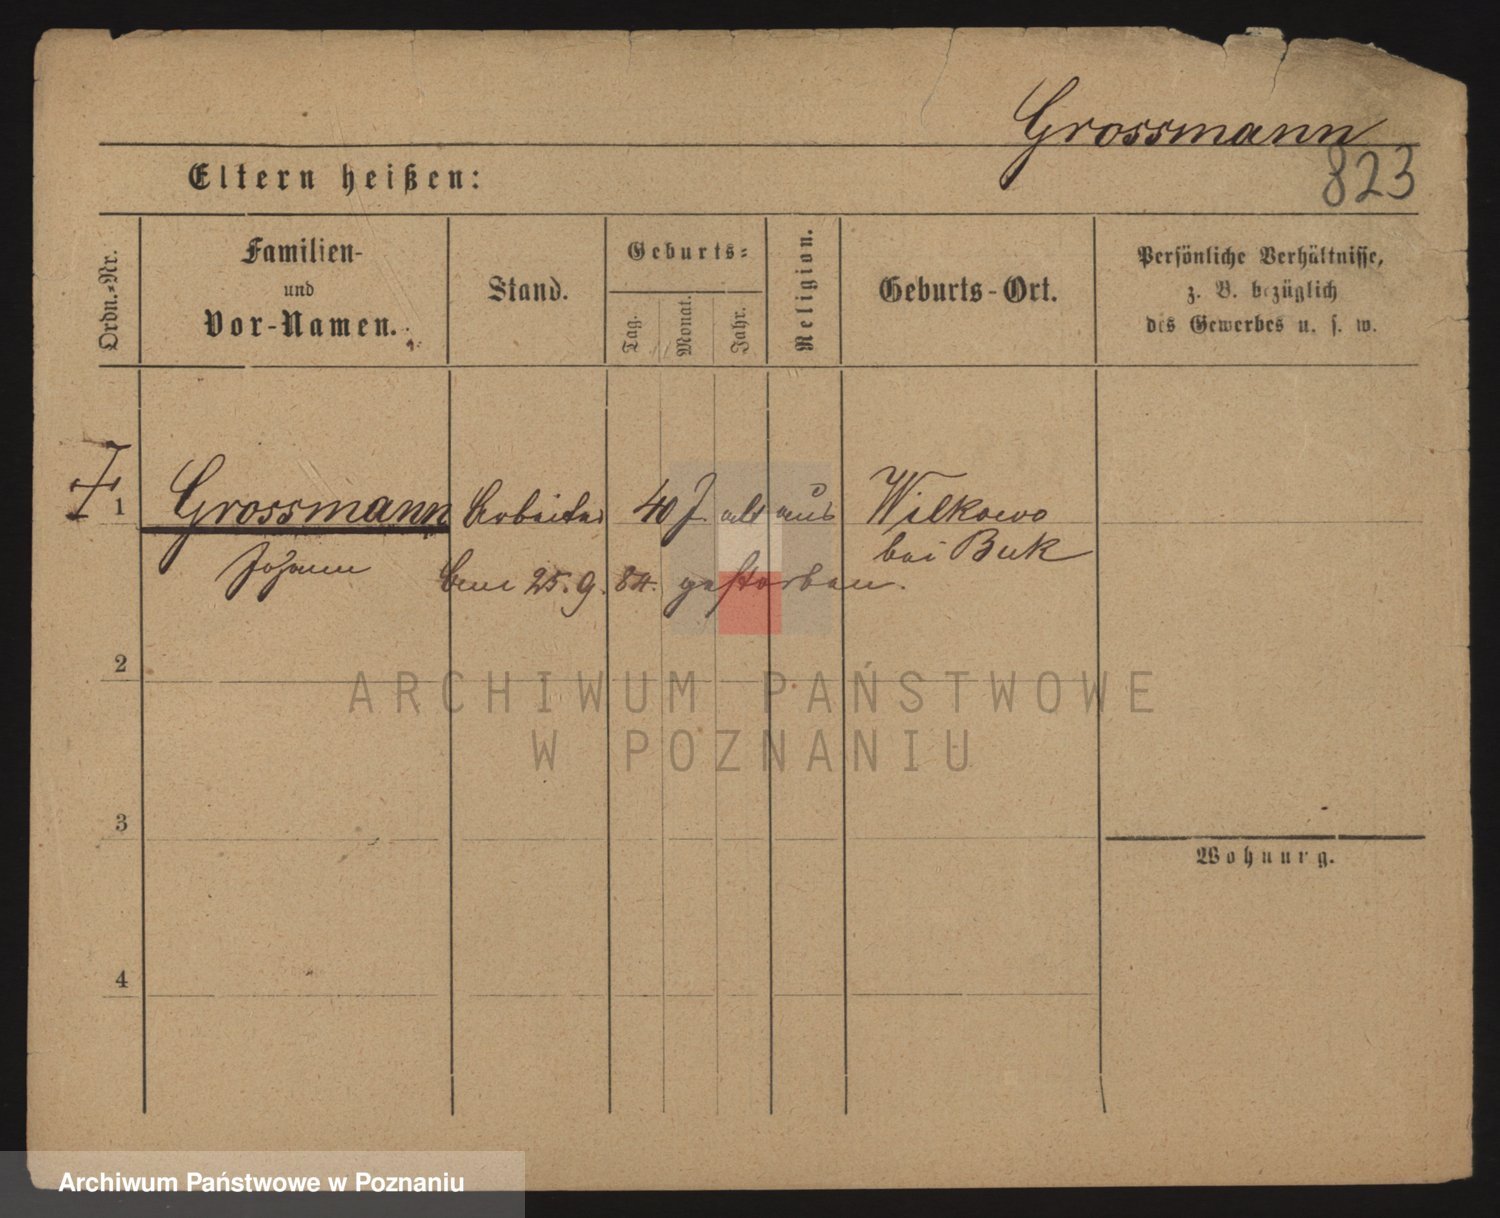 Grossmann
823
Eltern heißen:
Ordn.-Nr.
Familien-
und
Vor-Namen.
Stand.
Geburts-
Tag.
Monat.
Jahr.
Religion.
Geburts-Ort.
Persönliche Verhältnisse,
z. B. bezüglich
des Gewerbes u. s. w.
1 Grossmann Arbeiter 40 J. alt aus Wilkowo
bei Buk
Johann
Am 25.9.84. gestorben.
2
ARCHIWUM PAŃSTWOWE
W POZNANIU
3
Wohnung.
4
Archiwum Państwowe w Poznaniu